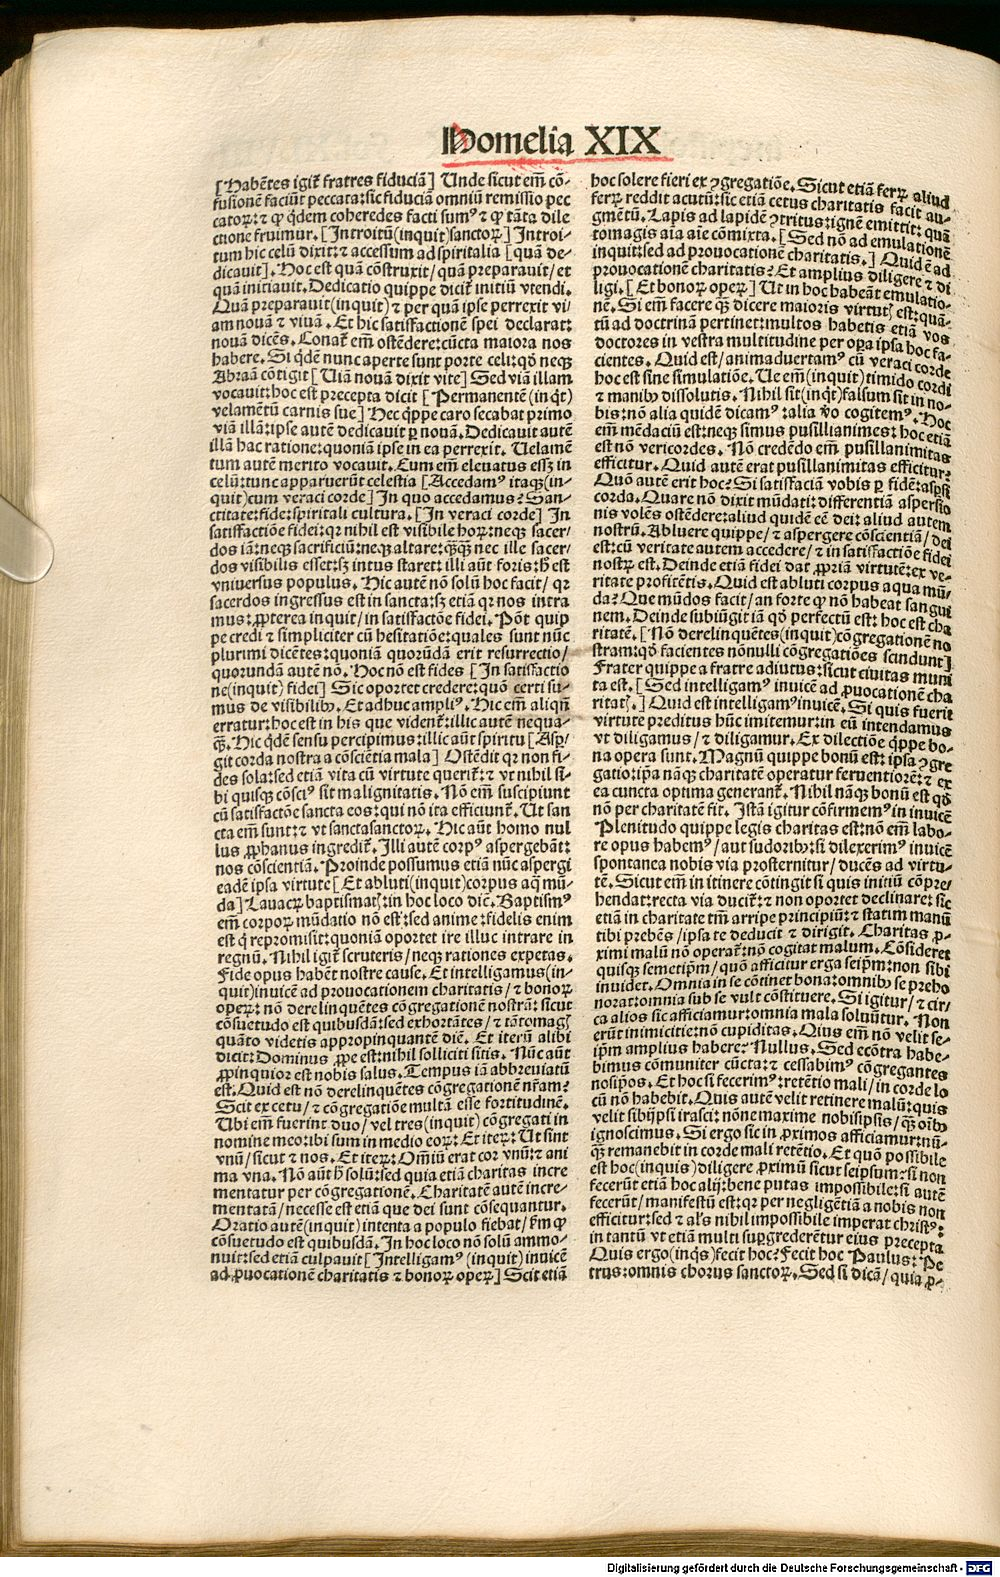 Homelia XIX
[Habētes igit᷑ fratres fiduciā] Unde sicut em̄ cō-
fusionē faciūt peccata: sic fiduciā omniū remissio pec
catoꝝ: ⁊ ꝙ q̇dem coheredes facti sumꝰ ⁊ ꝙ tāta dile
ctione fruimur. [Introitū(inquit)sanctoꝝ] Introi-
tum hic celū dixit: ⁊ accessum ad spiritalia [quā de-
dicauit]. Hoc est quā cōstruxit/ quā preparauit/ et
quā iniciauit. Dedicatio quippe dicit᷑ initiū vtendi.
Quā preparauit(inquit) ⁊ per quā ipse perrexit vi-
am nouā ⁊ viuā. Et hic satisfactionē spei declarat:
nouā dicēs. Conat᷑ em̄ ostēdere: cūcta maiora nos
habere. Si q̇dē nunc aperte sunt porte celi: qḋ neqꝫ
Abraā cōtigit [Uiā nouā dixit vite] Sed viā illam
vocauit: hoc est precepta dicit [Permanentē (inq̇t)
velamētū carnis sue] Hec q̇ppe caro secabat primo
viā illā: ipse autē dedicauit ꝑ nouā. Dedicauit autē
illā hac ratione: quoniā ipse in ea perrexit. Uelamē
tum autē merito vocauit. Cum em̄ eleuatus essꝫ in
celū: tunc apparuerūt celestia [Accedamꝰ itaqꝫ(in-
quit)cum veraci corde] In quo accedamus? San-
ctitate: fide: spiritali cultura. [In veraci corde] In
satisfactiōe fidei: qꝛ nihil est visibile hoꝝ: neqꝫ sacer/
dos iā: neqꝫ sacrificiū: neqꝫ altare: q̄qꝫ nec ille sacer/
dos visibilis esset: sꝫ intus staret: illi aūt foris: hͦ est
vniuersus populus. Hic autē nō solū hoc facit/ qꝛ
sacerdos ingressus est in sancta: sꝫ etiā qꝛ nos intra
mus: ꝓpterea inquit/ in satisfactōe fidei. Pōt quip
pe credi ⁊ simpliciter cū hesitatiōe: quales sunt nūc
plurimi dicētes: quoniā quorūdā erit resurrectio/
quorundā autē nō. Hoc nō est fides [In satisfactio
ne(inquit) fidei] Sic oportet credere: quō certi su-
mus de visibilibꝰ. Et adhuc ampliꝰ. Hic em̄ aliqn̄
erratur: hoc est in his que vident᷑: illic autē nequa-
q̄ꝫ. Hic q̇dē sensu percipimus: illic aūt spiritu [Aspꝑ/
git corda nostra a cōsciētia mala] Ostēdit qꝛ non fi-
des sola: sed etiā vita cū virtute querit᷑: ⁊ vt nihil si-
bi quisqꝫ cōsciꝰ sit malignitatis. Nō em̄ suscipiunt
cū satisfactōe sancta eos: qui nō ita efficiunt᷑. Ut san
cta em̄ sunt: ⁊ vt sanctasanctoꝝ. Hic aūt homo nul
lus ꝓphanus ingredit᷑. Illi autē corpꝰ aspergebāt:
nos cōscientiā. Proinde possumus etiā nūc aspergi
eadē ipsa virtute [Et abluti(inquit)corpus aq̄ mū-
da] Lauacꝝ baptismatꝭ: in hoc loco dic̄. Baptismꝰ
em̄ corpoꝝ mūdatio nō est: sed anime: fidelis enim
est q̇ repromisit: quoniā oportet ire illuc intrare in
regnū. Nihil igit᷑ scruteris/ neqꝫ rationes expetas.
Fide opus habēt nostre cause. Et intelligamus(in-
quit)inuicē ad prouocationem charitatis/ ⁊ bonoꝝ
opeꝝ: nō derelinquētes cōgregationē nostrā: sicut
cōsuetudo est quibusdā: sed exhortātes/ ⁊ tātomagꝭ
quāto videtis appropinquantē diē. Et iterū alibi
dicit: Dominus ꝓpe est: nihil solliciti sitis. Nūc aūt
ꝓpinquior est nobis salus. Tempus iā abbreuiatū
est. Quid est nō derelinquētes cōgregationē nr̄am?
Scit ex cetu/ ⁊ cōgregatiōe multā esse fortitudinē.
Ubi em̄ fuerint duo/ vel tres(inquit) cōgregati in
nomine meo: ibi sum in medio eoꝝ: Et iteꝝ: Ut sint
vnū/ sicut ⁊ nos. Et iteꝝ: Om̄iū erat cor vnū: ⁊ ani
ma vna. Nō aūt hͦ solū: sed quia etiā charitas incre
mentatur per cōgregationē. Charitatē autē incre-
mentatā/ necesse est etiā que dei sunt cōsequantur.
Oratio autē(inquit) intenta a populo fiebat/ ẜm ꝙ
cōsuetudo est quibusdā. In hoc loco nō solū ammo-
nuit: sed etiā culpauit [Intelligamꝰ (inquit) inuicē
ad ꝓuocationē charitatis ⁊ bonoꝝ opeꝝ] Scit etiā
hoc solere fieri ex ꝯgregatiōe. Sicut etiā ferꝝ aliud
ferꝝ reddit acutū: sic etiā cetus charitatis facit au-
gmētū. Lapis ad lapidē ꝯtritus: ignē emittit: quā
tomagis aīa aīe cōmixta. [Sed nō ad emulationē
inquit: sed ad prouocationē charitatis.] Quid ē ad
prouocationē charitatis? Et amplius diligere ⁊ di
ligi. [Et bonoꝝ opeꝝ] Ut in hoc habeāt emulatio-
nē. Si em̄ facere q̄ꝫ dicere maioris virtutꝭ est: quā-
tū ad doctrinam pertinet: multos habetis etiā vos
doctores in vestra multitudine per oꝑa ipsa hoc fa-
cientes. Quid est/ animaduertamꝰ cū veraci corde
hoc est sine simulatiōe. Ue em̄(inquit) timido cordi
⁊ manibꝰ dissolutis. Nihil sit(inq̇t)falsum sit in no-
bis: nō alia quidē dicamꝰ: alia v̊o cogitemꝰ. Hoc
em̄ mēdaciū est: neqꝫ simus pusillianimes: hoc etiā
est nō vericordes. Nō credēdo em̄ pusillanimitas
efficitur. Quid autē erat pusillanimitas efficitur?
Quō autē erit hoc? Si satisfaciā vobis ꝑ fidē: aspsi
corda. Quare nō dixit mūdati: differentiā aspersio
nis volēs ostēdere: aliud quidē eē dei: aliud autem
nostrū. Abluere quippe/ ⁊ aspergere cōscientiā/ dei
est: cū veritate autem accedere/ ⁊ in satisfactiōe fidei
nostꝝ est. Deinde etiā fidei dat ꝓpriā virtutē: ex ve-
ritate profitētis. Quid est abluti corpus aqua mū-
da? Que mūdos facit/ an forte ꝙ nō habeat sangui
nem. Deinde subiūgit iā qḋ perfectū est: hoc est cha
ritatē. [Nō derelinquētes(inquit)cōgregationē no
stram: qḋ facientes nōnulli cōgregatiōes scindunt]
Frater quippe a fratre adiutus: sicut ciuitas muni
ta est. [Sed intelligamꝰ inuicē ad ꝓuocationē cha
ritatꝭ.] Quid est intelligamꝰ inuicē. Si quis fuerit
virtute preditus hūc imitemur: in eū intendamus
vt diligamus/ ⁊ diligamur. Ex dilectiōe q̇ppe bo-
na opera sunt. Magnū quippe bonū est: ipsa ꝯgre
gatio: ip̄a nāqꝫ charitatē operatur feruentiorē: ⁊ ex
ea cuncta optima generant᷑. Nihil nāqꝫ bonū est qḋ
nō per charitatē fit. Istā igitur cōfirmemꝰ in inuicē
Plenitudo quippe legis charitas est: nō em̄ labo-
re opus habemꝰ/ aut sudoribꝰ: si dilexerimꝰ inuicē
spontanea nobis via prosternitur/ ducēs ad virtu-
tē. Sicut em̄ in itinere cōtingit si quis initiū cōpre/
hendat: recta via ducit᷑: ⁊ non oportet declinare: sic
etiā in charitate tm̄ arripe principiū: ⁊ statim manū
tibi prebēs/ ipsa te deducit ⁊ dirigit. Charitas ꝓ-
ximi malū nō operat᷑: nō cogitat malum. Cōsideret
quisqꝫ semetip̄m/ quō afficitur erga seip̄m: non sibi
inuidet. Omnia in se cōtinet bona: omnibꝰ se preho
norat: omnia sub se vult cōstituere. Si igitur/ ⁊ cir/
ca alios sic afficiamur: omnia mala soluūtur. Non
erūt inimicitie: nō cupiditas. Qius em̄ nō velit se-
ip̄m amplius habere? Nullus. Sed ecōtra habe-
bimus cōmuniter cūcta: ⁊ cessabimꝰ cōgregantes
nosip̄os. Et hoc si fecerimꝰ: retētio mali/ in corde lo
cū nō habebit. Quis autē velit retinere malū: quis
velit sibijpsi irasci: nōne maxime nobisipsis/ q̄ꝫ oībꝰ
ignoscimus. Si ergo sic in ꝓximos afficiamur: nū-
q̄ꝫ remanebit in corde mali retētio. Et quō possibile
est hoc(inquis)diligere ꝓximū sicut seipsum? si non
fecerūt etiā hoc alij: bene putas impossibile: si autē
fecerūt/ manifestū est: qꝛ per negligētiā a nobis non
efficitur: sed ⁊ al's nihil impossibile imperat christꝰ:
in tantū vt etiā multi suꝑgrederētur eius precepta
Quis ergo(inq̇s)fecit hoc? Fecit hoc Paulus: Pe
trus: omnis chorus sanctoꝝ. Sed si dicā/ quia ꝓ-
Digitalisierung gefördert durch die Deutsche Forschungsgemeinschaft - DFG